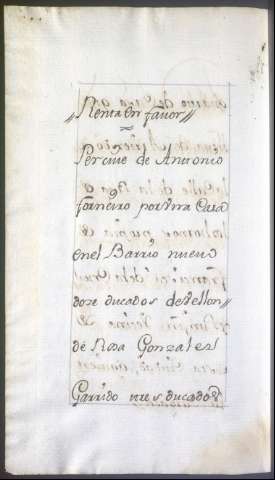 „Renta en favor„
Percive de Antonio
forneiro por Una Casa
en el Barrio nuevo
doze ducados de vellon„
de Rosa Gonzalez
Garrido tres ducados